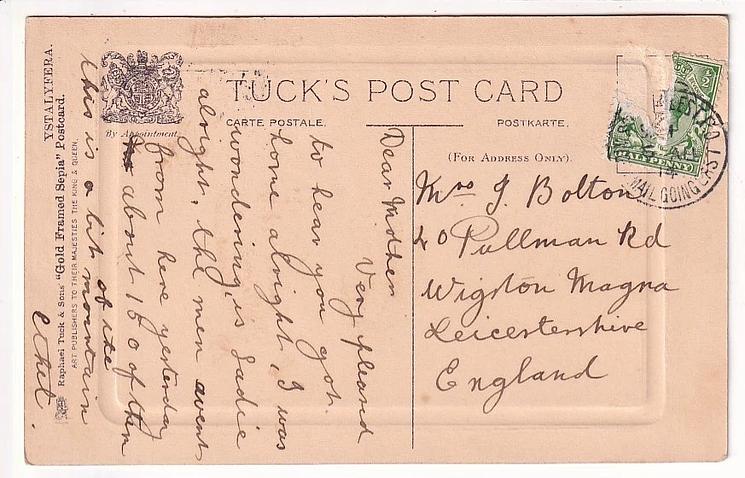 YSTALYFERA.
Raphael Tuck & Sons' "Gold Framed Sepia" Postcard.
ART PUBLISHERS TO THEIR MAJESTIES THE KING & QUEEN.
By Appointment.
TUCK'S POST CARD
CARTE POSTALE.
POSTKARTE.
(FOR ADDRESS ONLY).
Dear Mother
Very pleased
to hear you got
home alright, I was
wondering, is Sadie
alright, the men went
from here yesterday
about 150 of them
this is a bit mountain
of its
Ethel.
Mrs J. Bolton
40 Pullman Rd
Wigston Magna
Leicestershire
England
HALFPENNY
MAIL GOING ERS
14